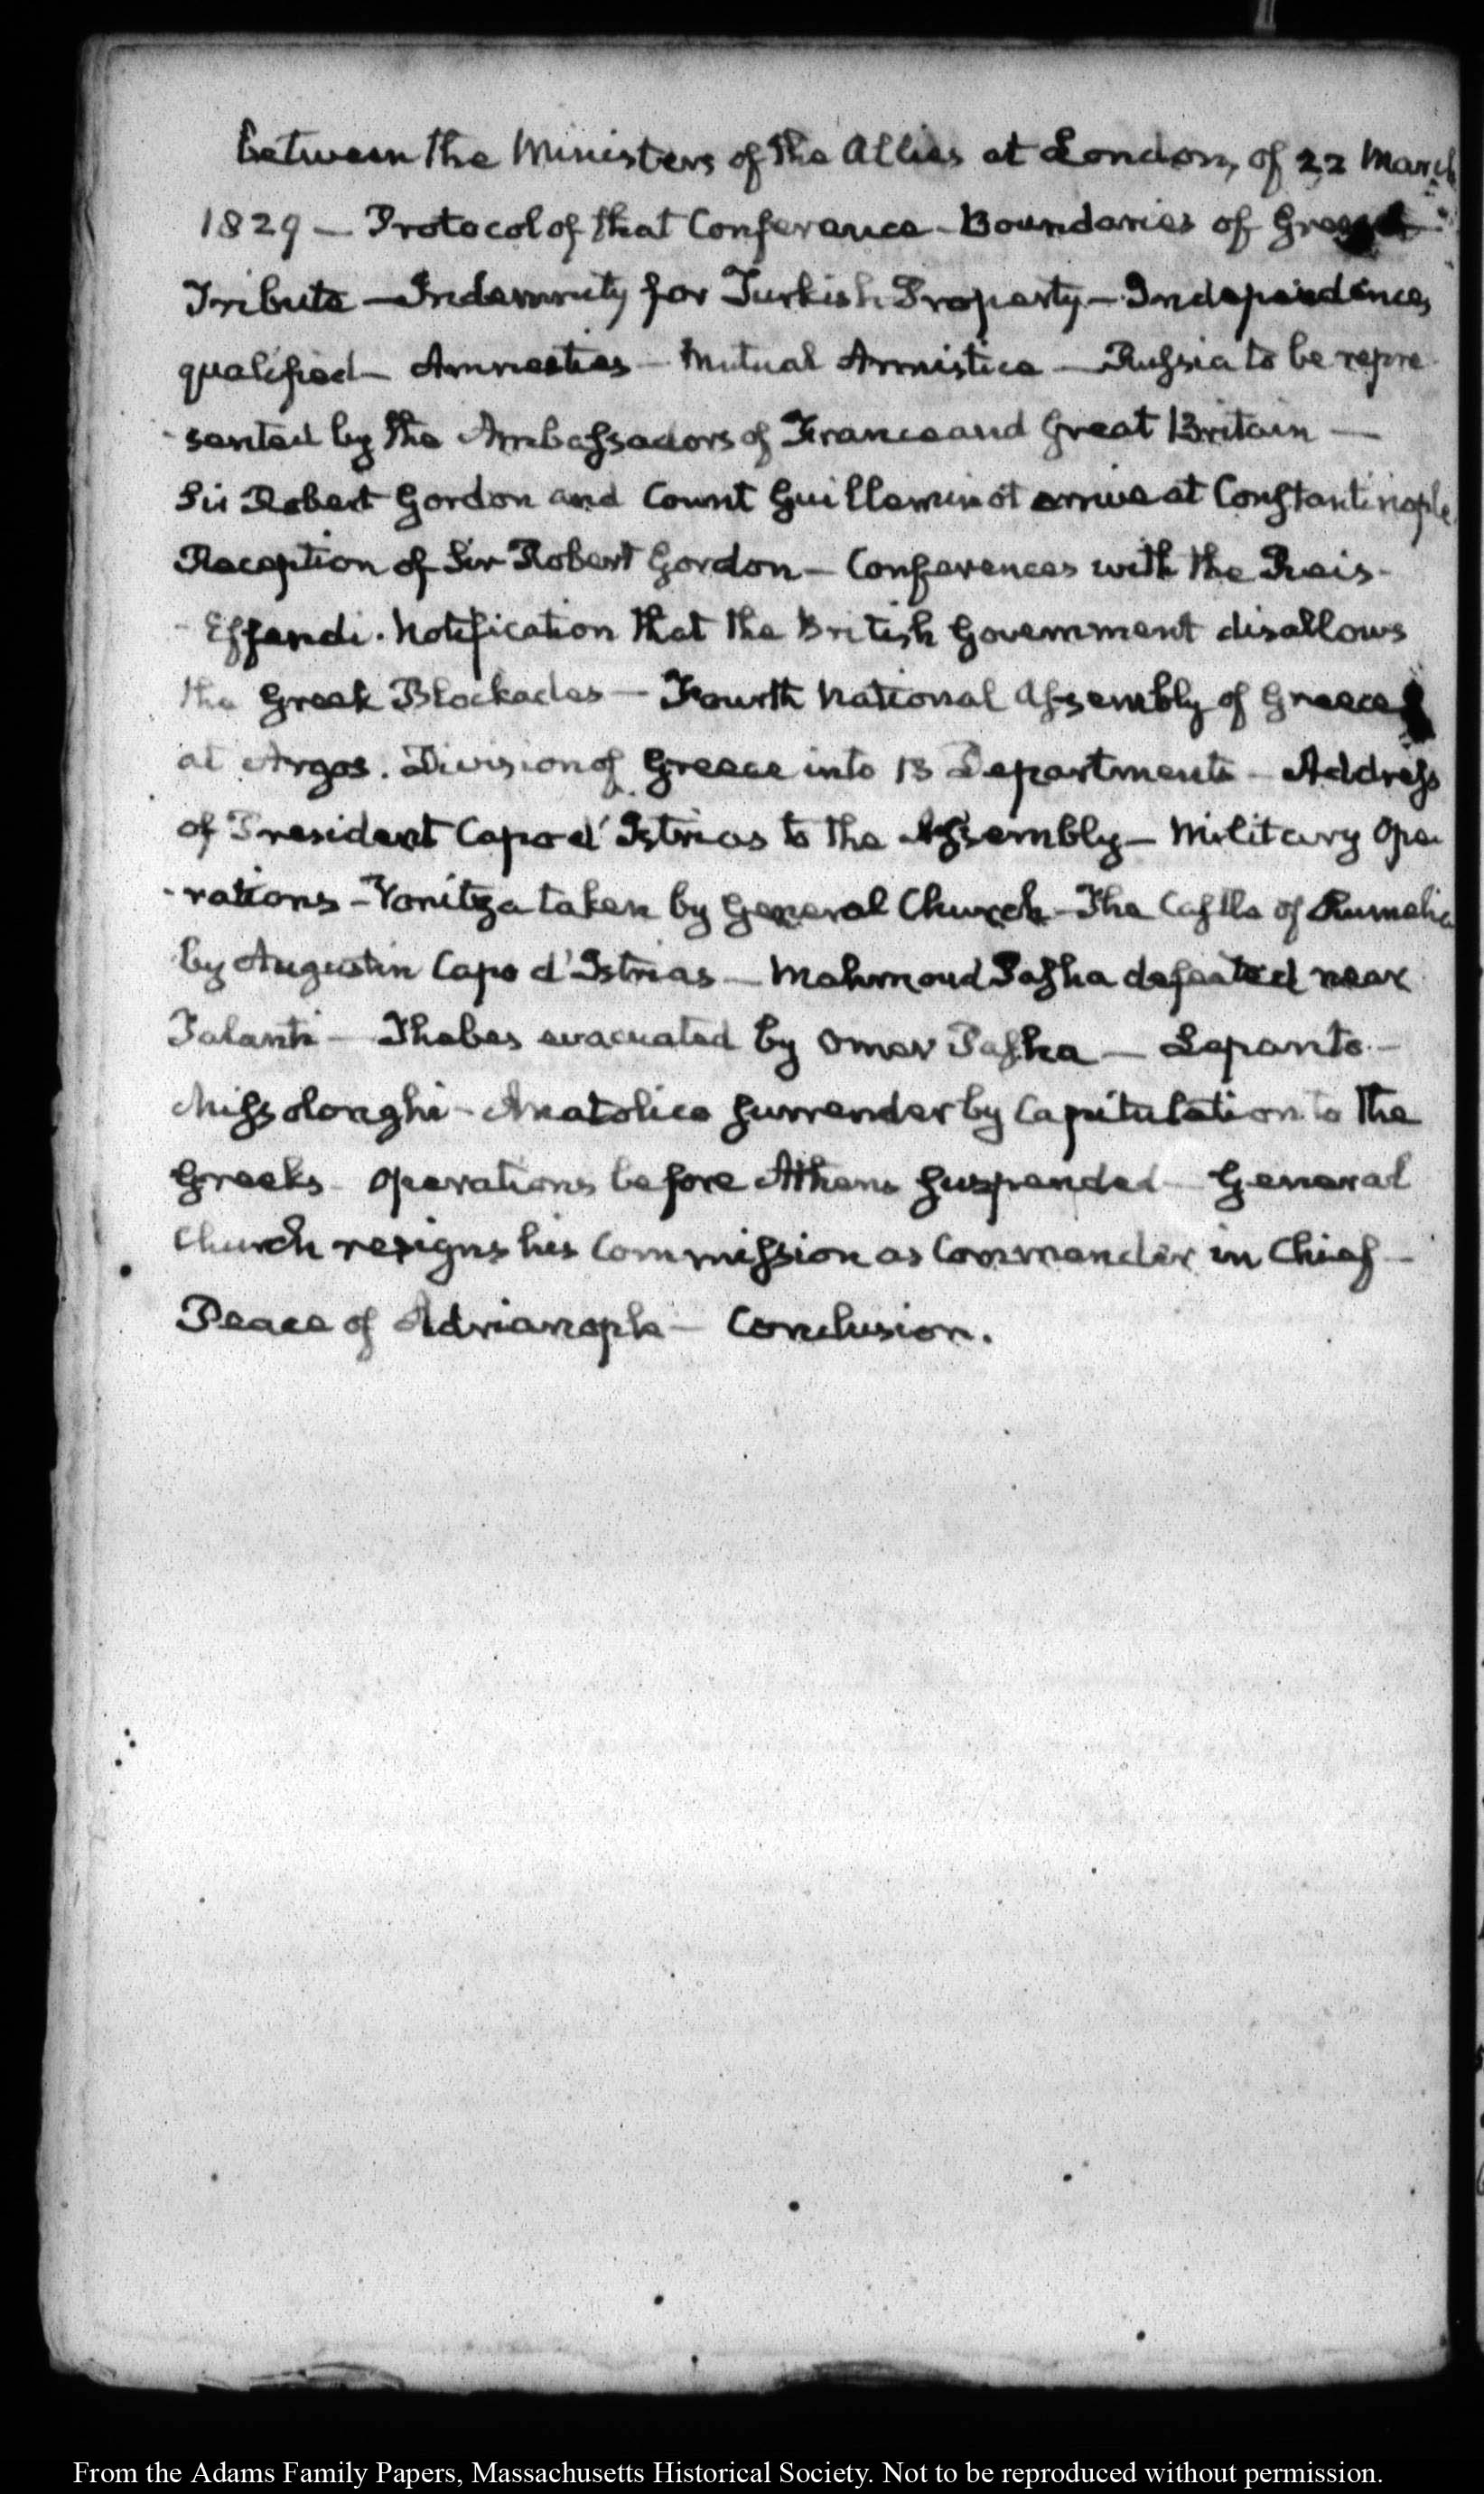 between the Ministers of the Allies at London, of 22 March
1829 — Protocol of that Conference — Boundaries of Greece
Tribute — Indemnity for Turkish Property — Independence,
qualified — Amnesties — Mutual Armistice — Russia to be repre-
-sented by the Ambassadors of France and Great Britain —
Sir Robert Gordon and Count Guilleminot arrive at Constantinople
Reception of Sir Robert Gordon — Conferences with the Reis-
-Effendi. Notification that the British Government disallows
the Greek Blockades — Fourth National Assembly of Greece
at Argos. Division of Greece into 13 Departments — Address
of President Capo d'Istrias to the Assembly — Military Ope-
-rations — Vonitza taken by General Church — The Castle of Rumelia
by Augustin Capo d'Istrias — Mahmoud Pasha defeated near
Talanti — Thebes evacuated by Omer Pasha — Lepanto —
Missolonghi — Anatolico surrender by Capitulation to the
Greeks — Operations before Athens suspended — General
Church resigns his Commission as Commander in Chief —
Peace of Adrianople — Conclusion.
From the Adams Family Papers, Massachusetts Historical Society. Not to be reproduced without permission.